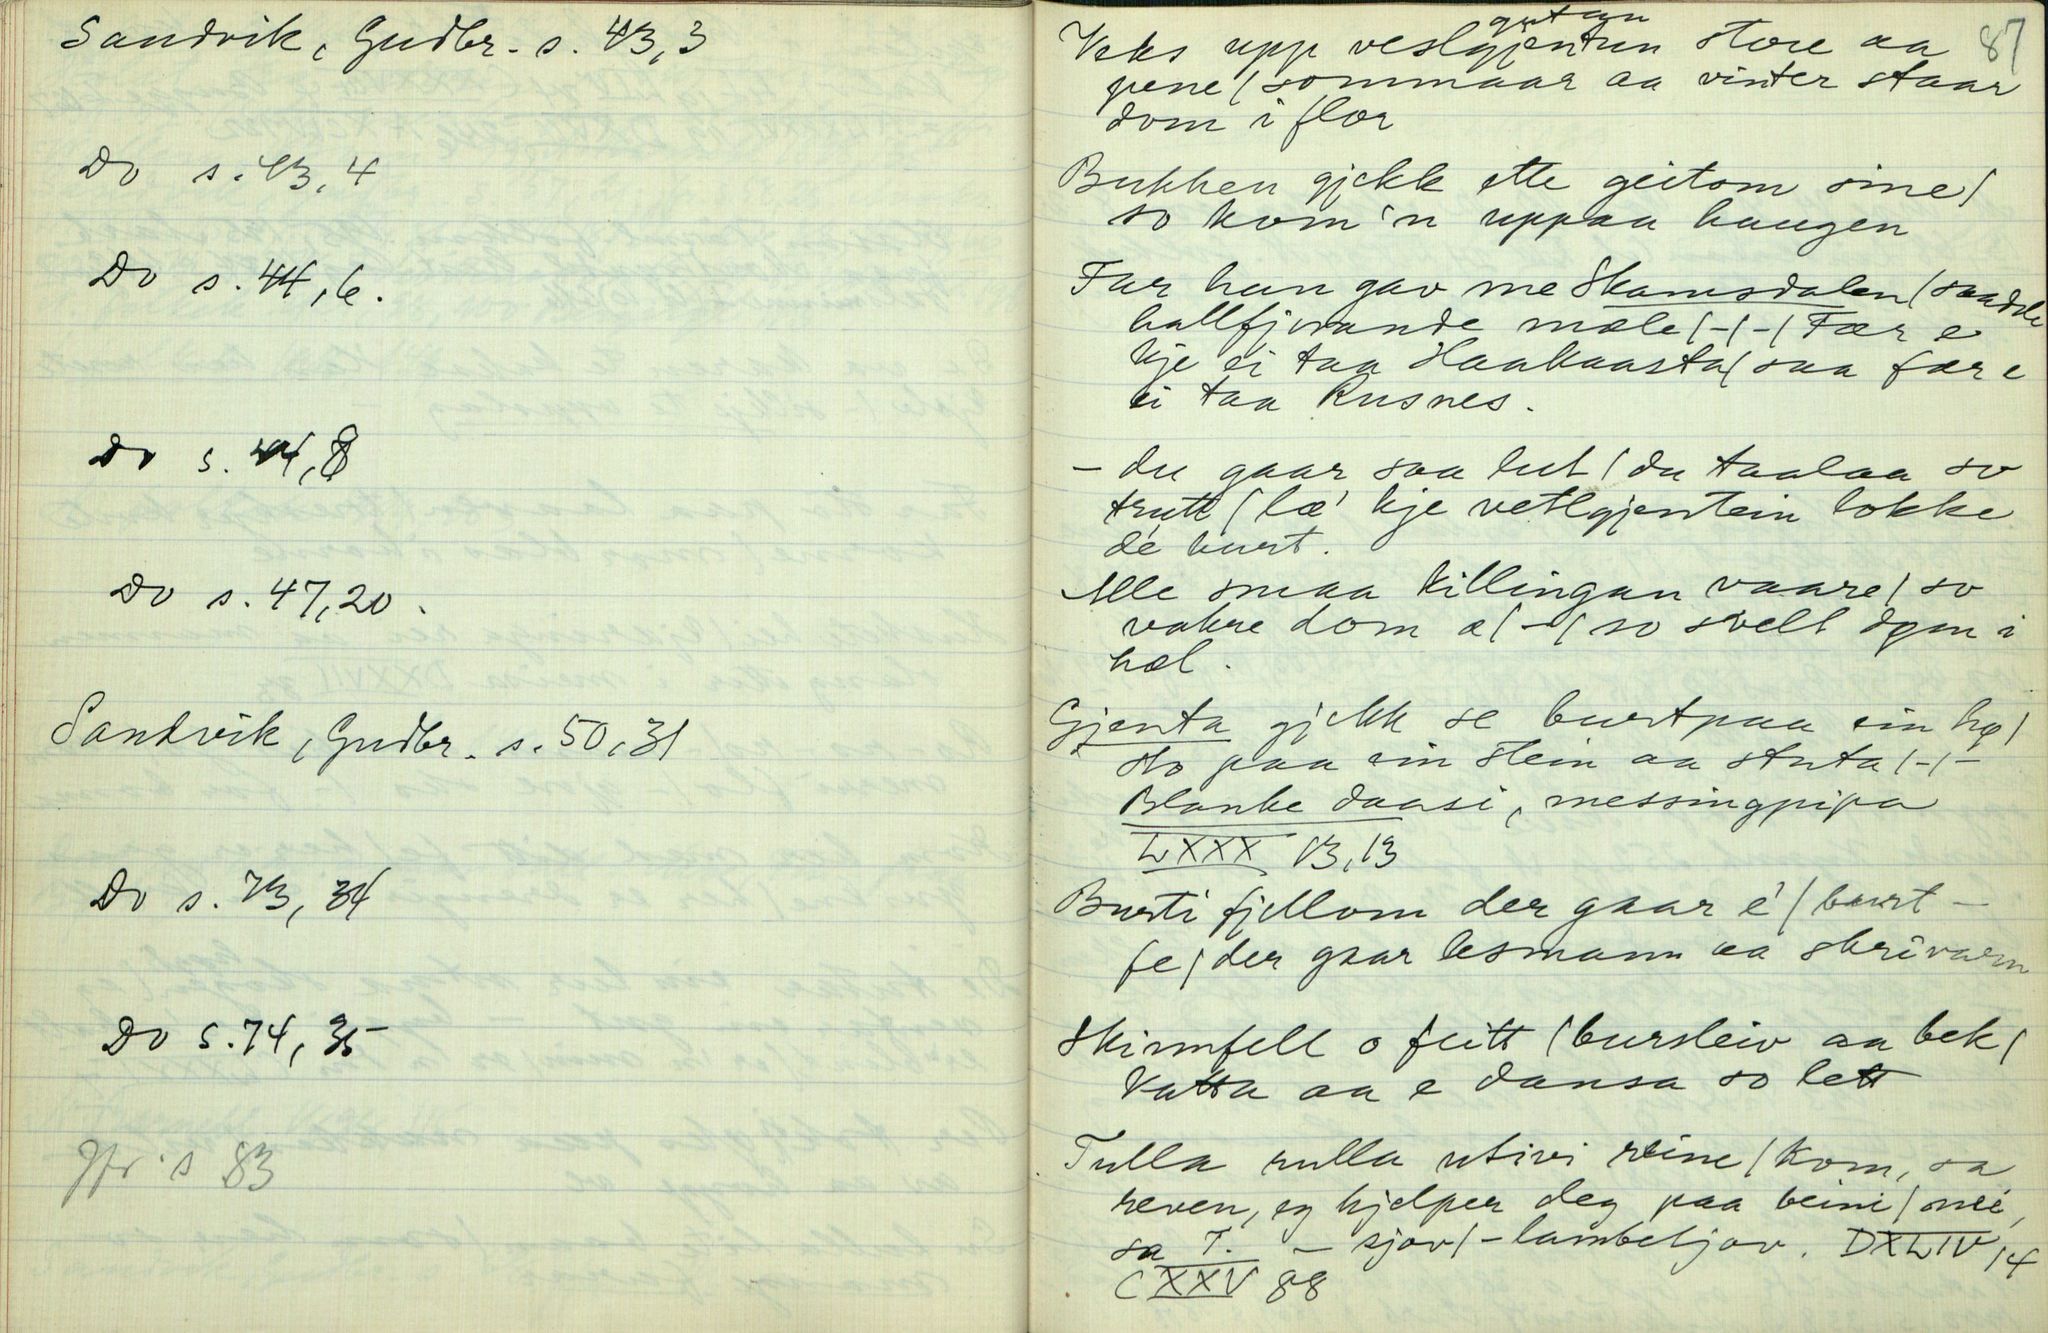 Sandvik, Gudbr. s. 43,3
Do s. 43,4
Do s. 44,6.
Do s. 44,8
Do s. 47,20.
Sandvik, Gudbr. s. 50,31
Do s. 73, 34
Do s. 74, 35
Jfr. s 83
87
gutan
Veks upp veslgjentun store aa
pene / sommaar aa vinter staar
dom i flor
Bukken gjekk ette geitom sine /
so kom 'n uppaa haugen
Far han gav me Skamsdalen / saadde
hallfjorande mæle / - / - / Fær e
kje ei taa Haakaasta / saa fær e
ei taa Rusnes.
- du gaar saa lut / du taalaa so
trutt / læ' kje vetlgjentein lokke
de burt.
Alle smaa killingan vaare / so
vakre dom æ / - / so svelt dom i
hæl.
Gjenta gjekk se burtpaa ein hø /
slo paa ein stein aa stuta / - / -
Blanke daasi, messingpipa
LXXX 13,13
Burti fjellom der gaar e' / burt -
fe / der gaar lesmann aa skrivarn
Skinnfell o feitt / bursleiv aa bek /
Katta aa e dansa so lett
Tulla rulla utivi reine / kom, sa
reven, eg hjelper deg paa beini / nei,
sa T. - sjov / - lambeljov. DXLIV, 14
CXXV 88